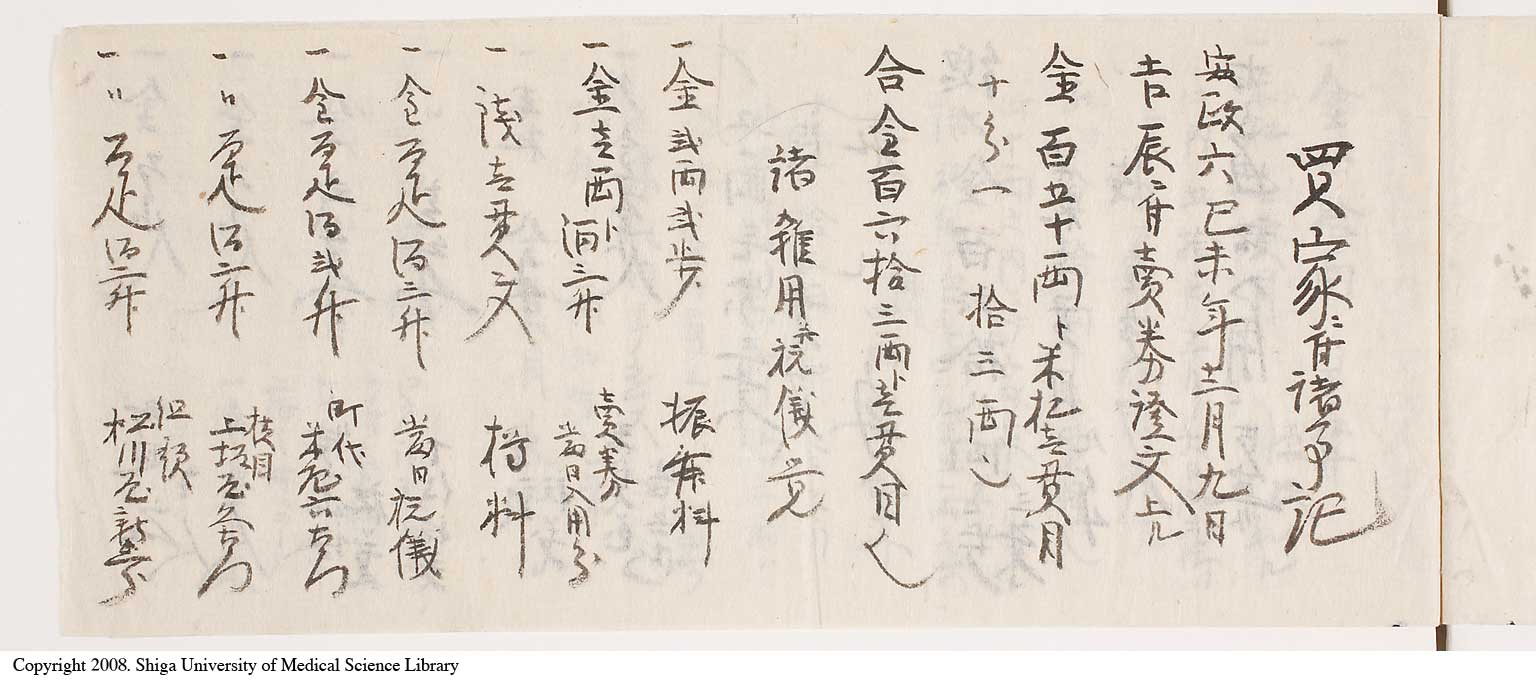 買家ニ付諸事記
安政六己未年十二月九日
吉辰ニ付賣券證文上ル
金百五十両ト米札壱貫目
十分一 拾三両也
合金百六拾三両ト壱貫目也
諸雑用并祝儀覚
一 金弐両弐歩 振舞料
一 金壱両ト酒三升 賣券当日入用分
一 銭壱貫文 樽料
一 金百疋酒三升 当日祝儀
一 金百疋酒弐升 町代 米屋六右衛門
一 〃 百疋酒二升 横目 上坂屋
一 〃 百疋酒二升 組頭 松川屋
Copyright 2008. Shiga University of Medical Science Library